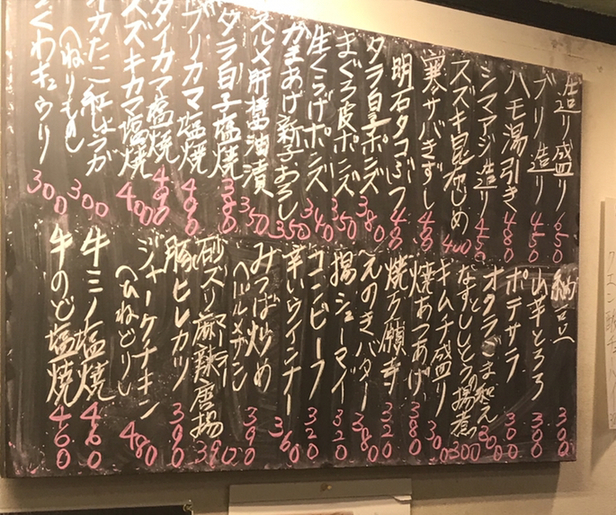 造り盛り 650
ブリ造り 450
ハモ湯引き 480
シマアジ造り 450
スズキ昆布じめ 400
寒サバきずし 480
明石タコぶつ 480
タラ白子ポンズ 380
まぐろ皮ポンズ 350
生くらげポンズ 340
かまあげ新子おろし 350
スルメ肝醤油漬 350
タラ白子塩焼 380
ブリカマ塩焼 400
タイカマ塩焼 400
スズキカマ塩焼 400
イカたこ紅しょうが
へねりもの 300
ちくわキュウリ 300
納豆 300
山芋とろろ 300
ポテサラ 300
オクラごま和え 300
なすししとう揚煮 300
キムチ盛り 300
焼あつあげ 380
焼万願寺 380
えのきバター 320
揚シューマイ 320
コンビーフ 320
辛いウインナー 360
みつば炒め 390
砂ズリ麻辣唐揚 390
豚ヒレカツ 390
ジャークチキン 480
牛ミノ塩焼 460
牛のど塩焼 460